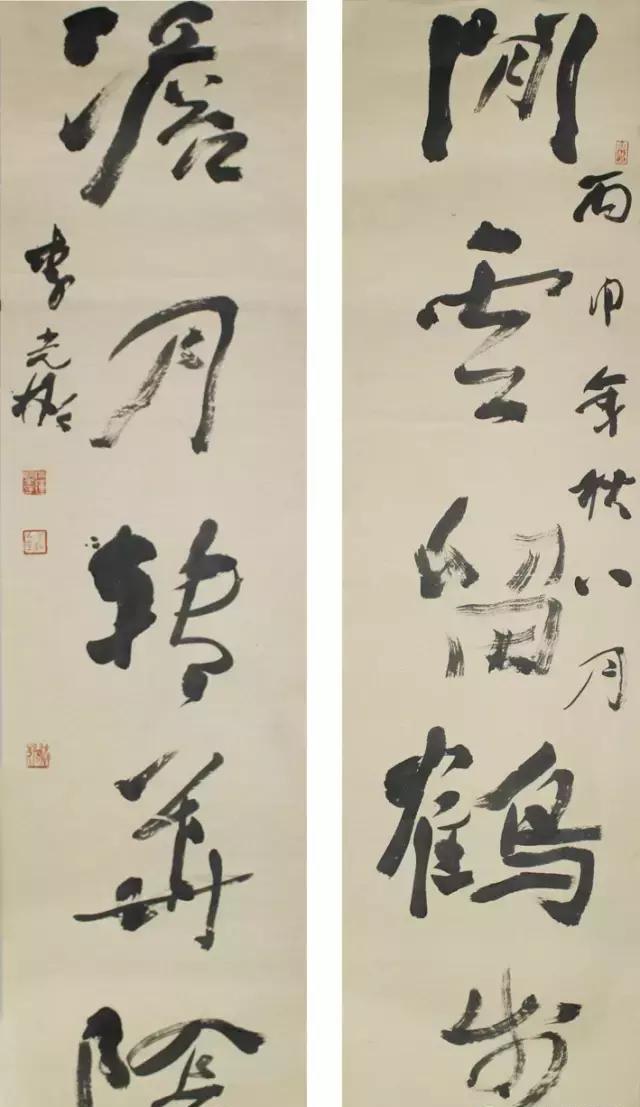 丙申年秋八月
閒雲留鶴步
澹月轉華陰
李光